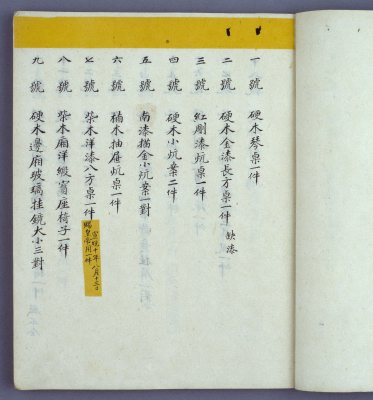 一號 硬木琴桌一件
二號 硬木金漆長方桌一件 缺漆
三號 紅彫漆炕桌一件
四號 硬木小炕案二件
五號 南漆描金小炕案一對
六號 楠木抽屜炕桌一件
七號 柴木洋漆八方桌一件
宣統十年八月十三日
賜皇用一件
八號 柴木廂洋緞寶座椅子一件
九號 硬木邊廂玻璃挂鏡大小三對